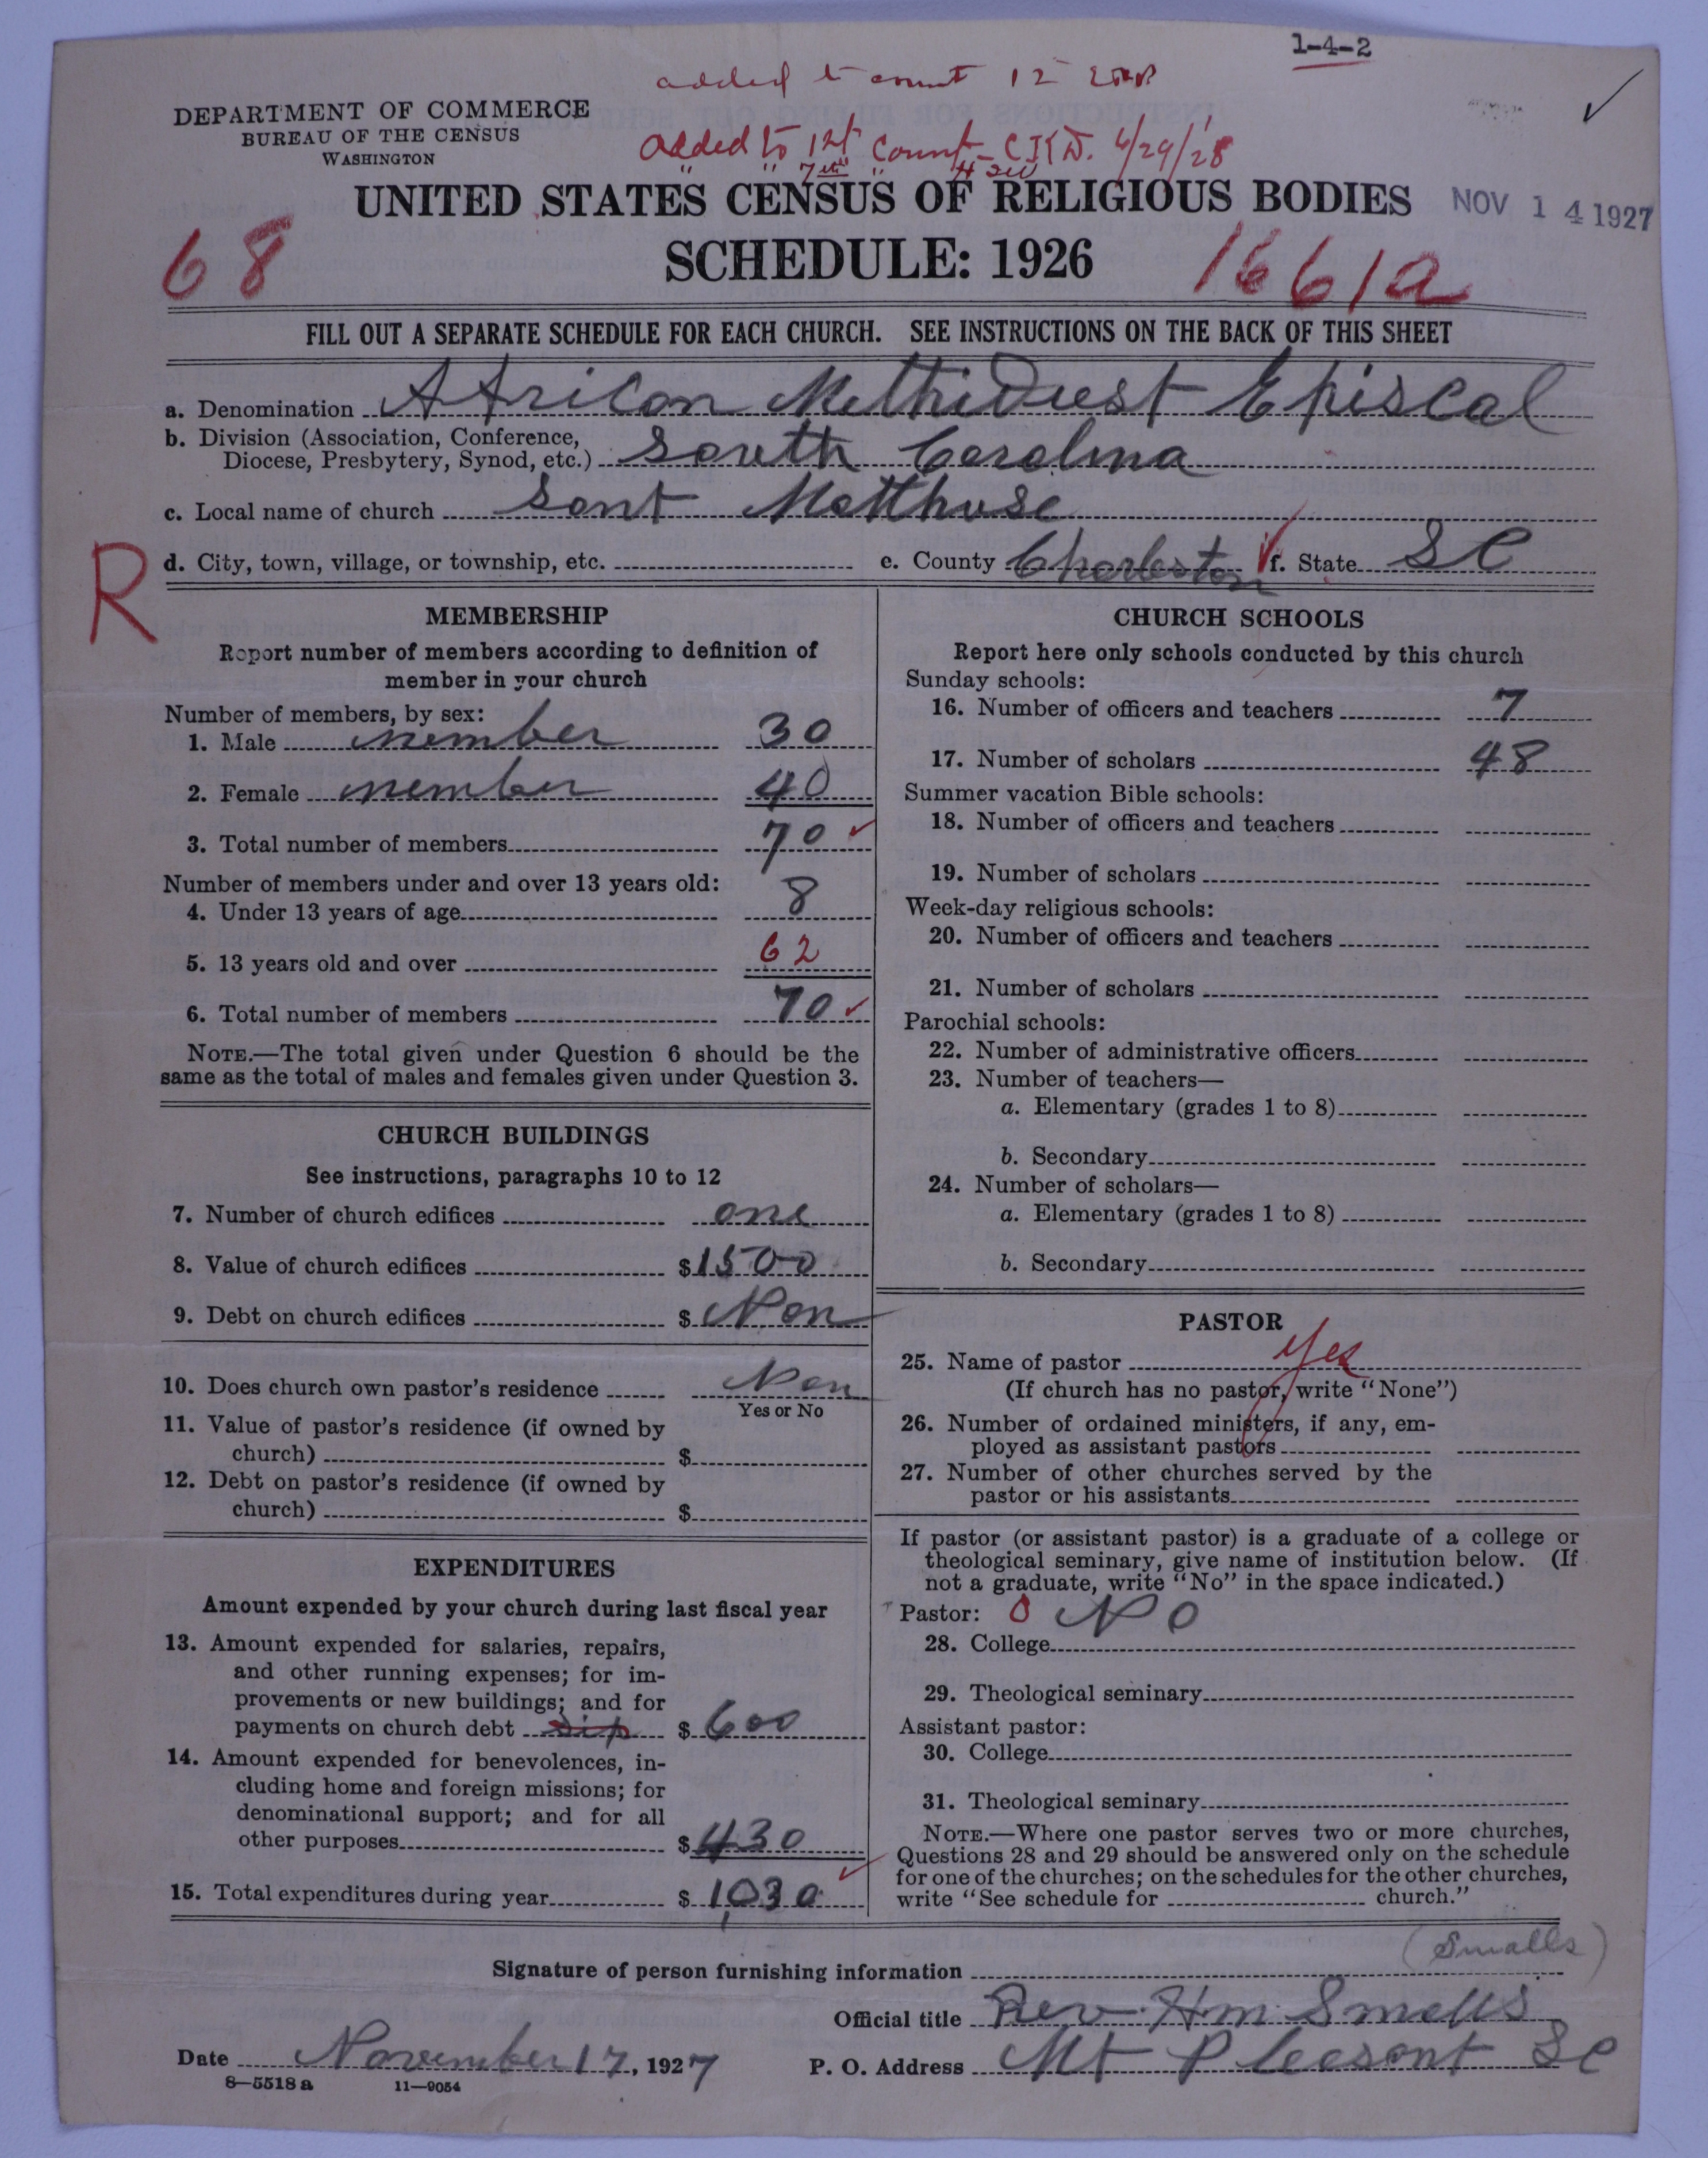 1-4-2
added to count 12
DEPARTMENT OF COMMERCE
BUREAU OF THE CENSUS
WASHINGTON
added to 1st count - C.K.D. 4/29/28
" " 7th "
UNITED STATES CENSUS OF RELIGIOUS BODIES
NOV 14 1927
68
SCHEDULE: 1926
1661a
FILL OUT A SEPARATE SCHEDULE FOR EACH CHURCH. SEE INSTRUCTIONS ON THE BACK OF THIS SHEET
a. Denomination African Methidiest Episcal
b. Division (Association, Conference,
Diocese, Presbytery, Synod, etc.) South Carolina
c. Local name of church Sant Matthuse
R
d. City, town, village, or township, etc.
e. County Charleston f. State S C
MEMBERSHIP
Report number of members according to definition of
member in your church
Number of members, by sex:
1. Male member 30
2. Female member 40
3. Total number of members 70
Number of members under and over 13 years old:
4. Under 13 years of age 8
5. 13 years old and over 62
6. Total number of members 70
NOTE.—The total given under Question 6 should be the
same as the total of males and females given under Question 3.
CHURCH BUILDINGS
See instructions, paragraphs 10 to 12
7. Number of church edifices one
8. Value of church edifices $1500
9. Debt on church edifices $ Non
10. Does church own pastor's residence Non
Yes or No
11. Value of pastor's residence (if owned by
church) $
12. Debt on pastor's residence (if owned by
church) $
EXPENDITURES
Amount expended by your church during last fiscal year
13. Amount expended for salaries, repairs,
and other running expenses; for im-
provements or new buildings; and for
payments on church debt $ 600
14. Amount expended for benevolences, in-
cluding home and foreign missions; for
denominational support; and for all
other purposes $ 430
15. Total expenditures during year $ 1,030
CHURCH SCHOOLS
Report here only schools conducted by this church
Sunday schools:
16. Number of officers and teachers 7
17. Number of scholars 48
Summer vacation Bible schools:
18. Number of officers and teachers
19. Number of scholars
Week-day religious schools:
20. Number of officers and teachers
21. Number of scholars
Parochial schools:
22. Number of administrative officers
23. Number of teachers—
a. Elementary (grades 1 to 8)
b. Secondary
24. Number of scholars—
a. Elementary (grades 1 to 8)
b. Secondary
PASTOR
25. Name of pastor yes
(If church has no pastor, write "None")
26. Number of ordained ministers, if any, em-
ployed as assistant pastors
27. Number of other churches served by the
pastor or his assistants
If pastor (or assistant pastor) is a graduate of a college or
theological seminary, give name of institution below. (If
not a graduate, write "No" in the space indicated.)
Pastor: 0 No
28. College
29. Theological seminary
Assistant pastor:
30. College
31. Theological seminary
NOTE.—Where one pastor serves two or more churches,
Questions 28 and 29 should be answered only on the schedule
for one of the churches; on the schedules for the other churches,
write "See schedule for church."
(Smalls)
Signature of person furnishing information
Official title Rev. Hm Smalls
Date November 17, 1927
P. O. Address Mt Pleesont S C
8—5518 a 11—9054